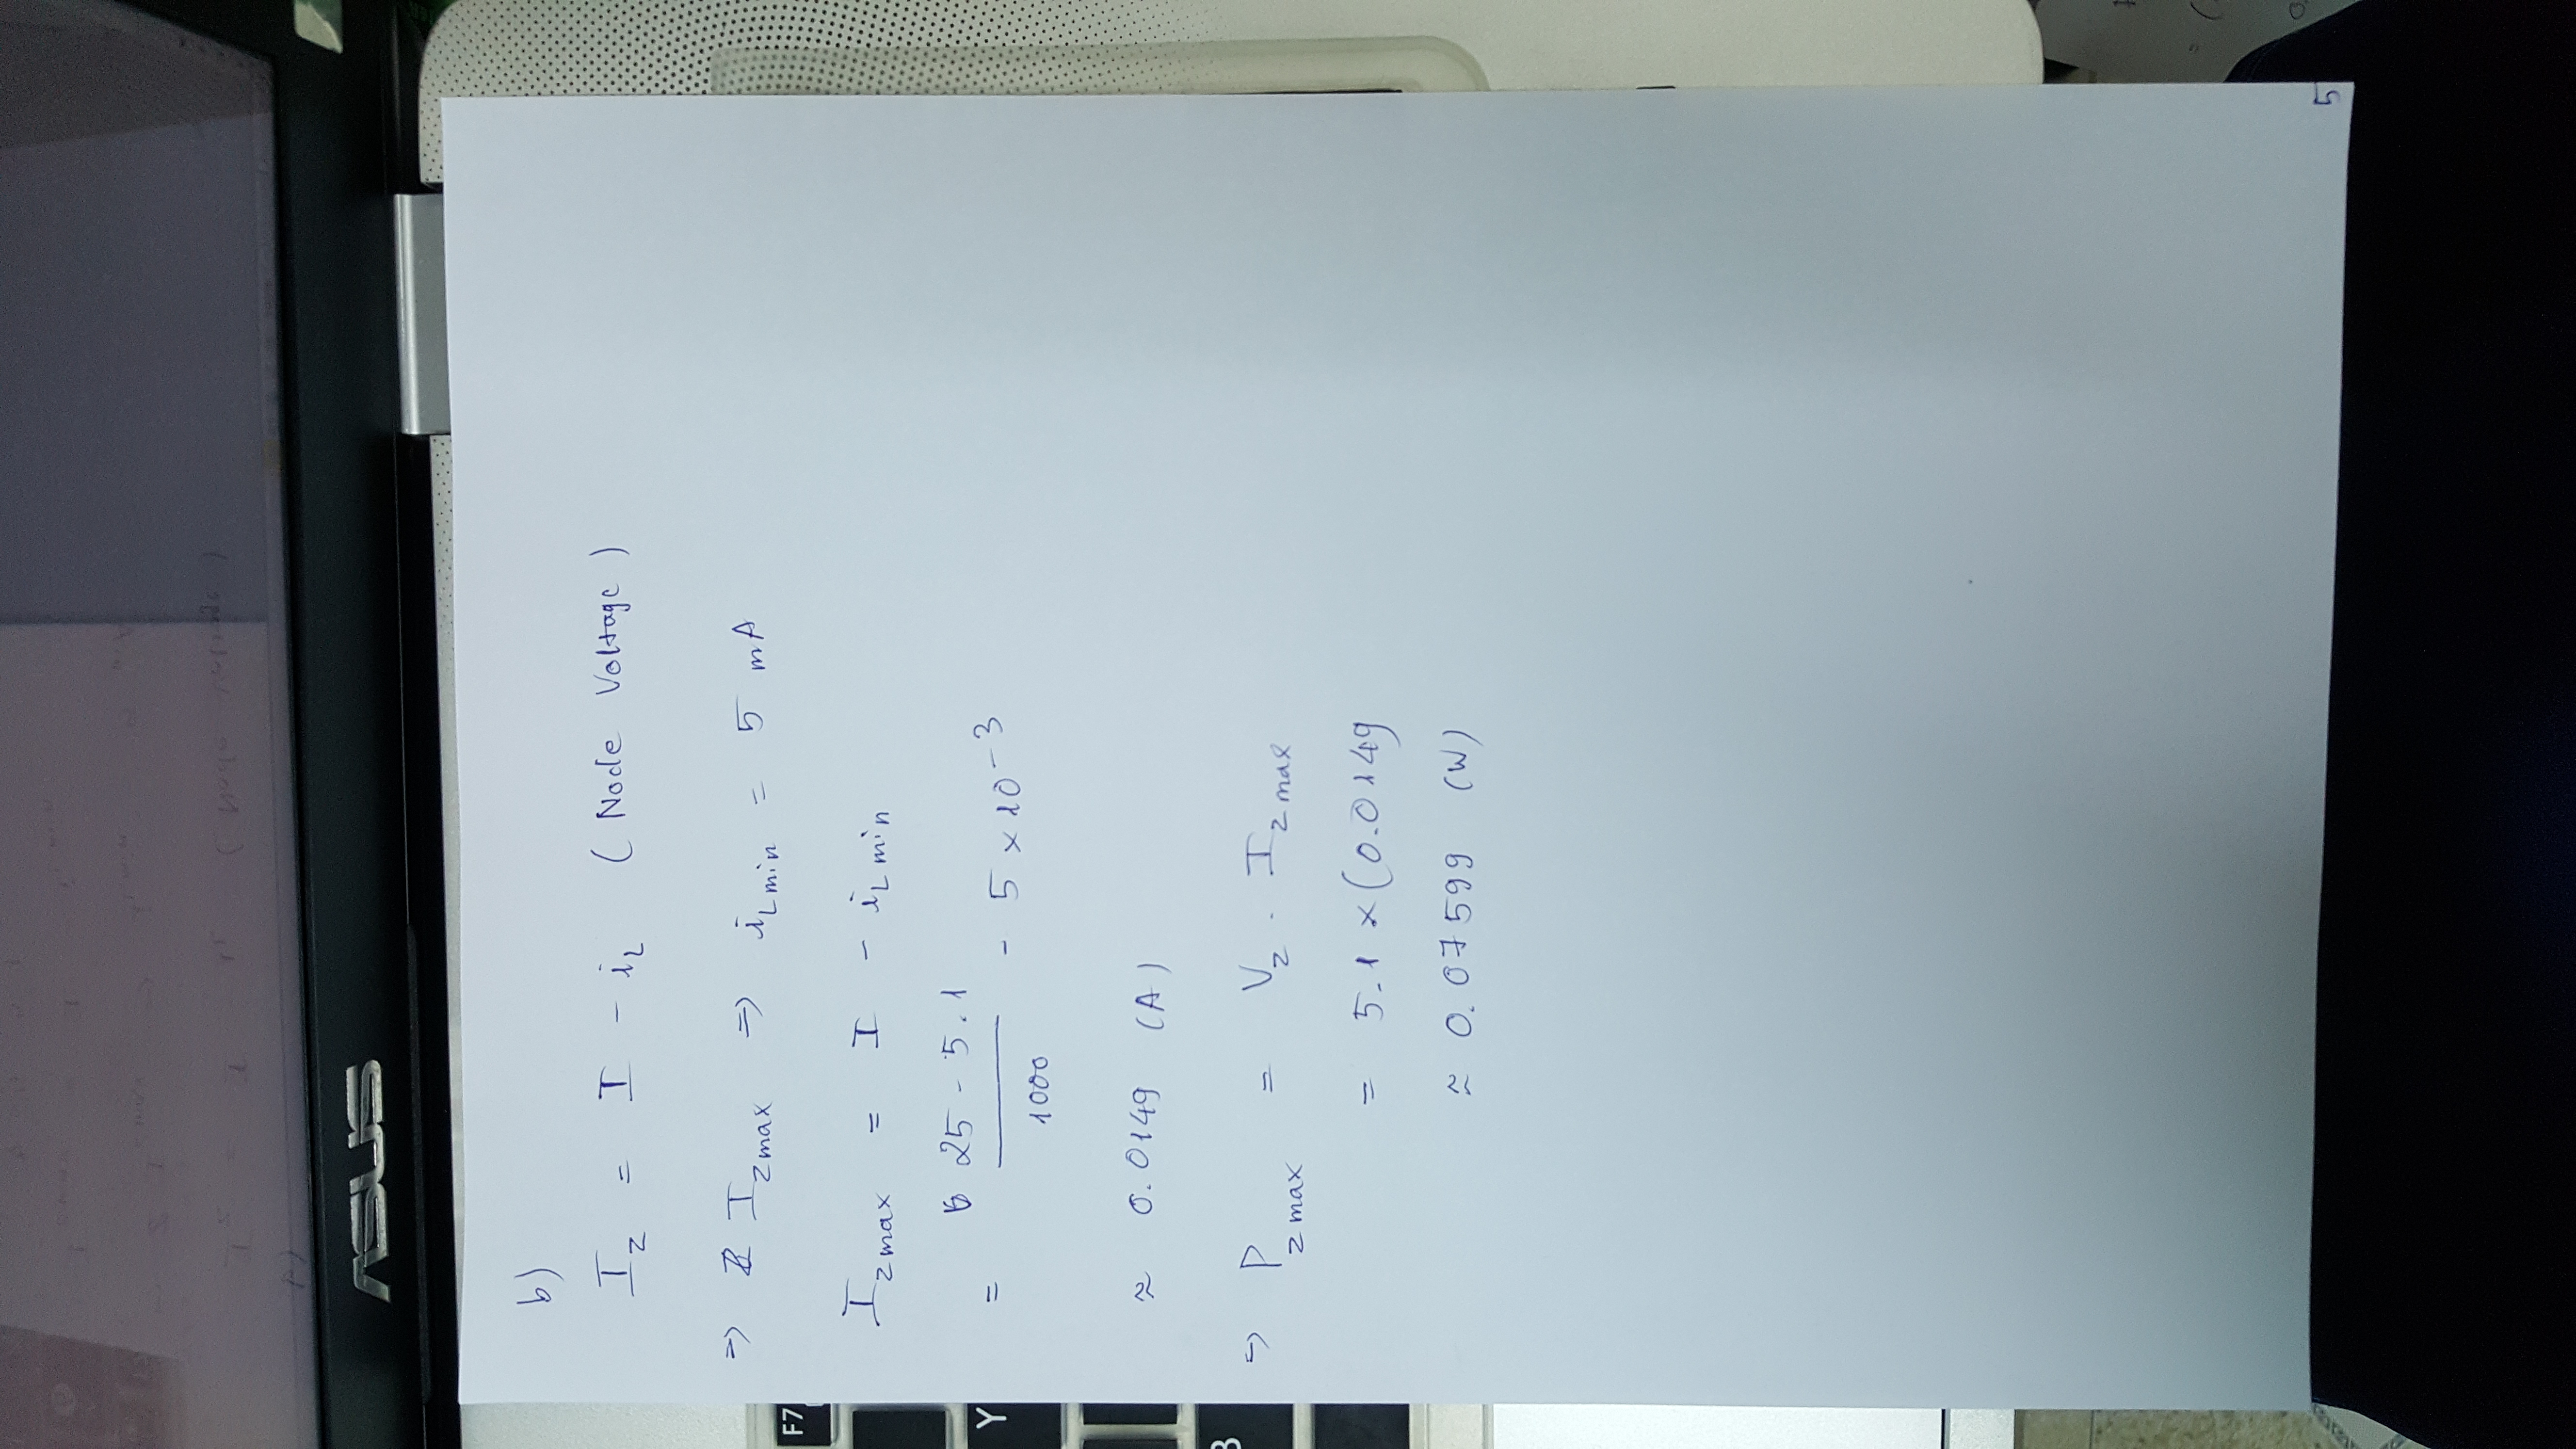 ( Node Voltage )
ASUS
b)
I_z = I - i_L ( Node Voltage )
=> I_zmax => i_Lmin = 5 mA
I_zmax = I - i_Lmin
= 25 - 5.1 / 1000 - 5 × 10^-3
≈ 0.0149 (A)
=> P_zmax = V_z . I_zmax
= 5.1 × (0.0149
≈ 0.07599 (W)
F7
Y
B
5